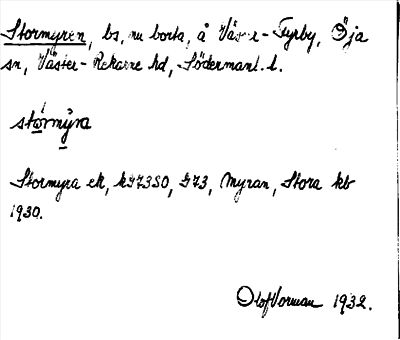 Stormyren, bs, nu borta, å Väster-Fyrby, Öja
sn, Väster-Rekarne hd, Södermanl. l.
stormyra
Stormyra ek, k573SO, 573, Myran, Stora kb
1930.
Olof Vorman 1932.